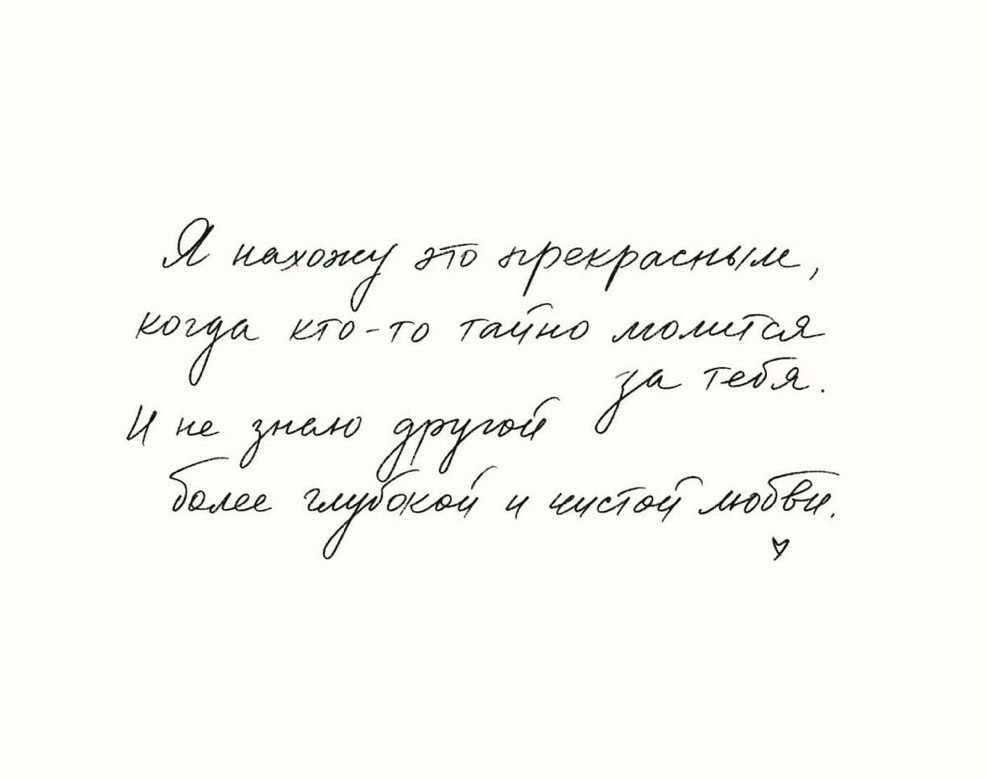 Я нахожу это прекрасным,
когда кто-то тайно молится
за тебя.
И не знаю другой
более глубокой и чистой любви.